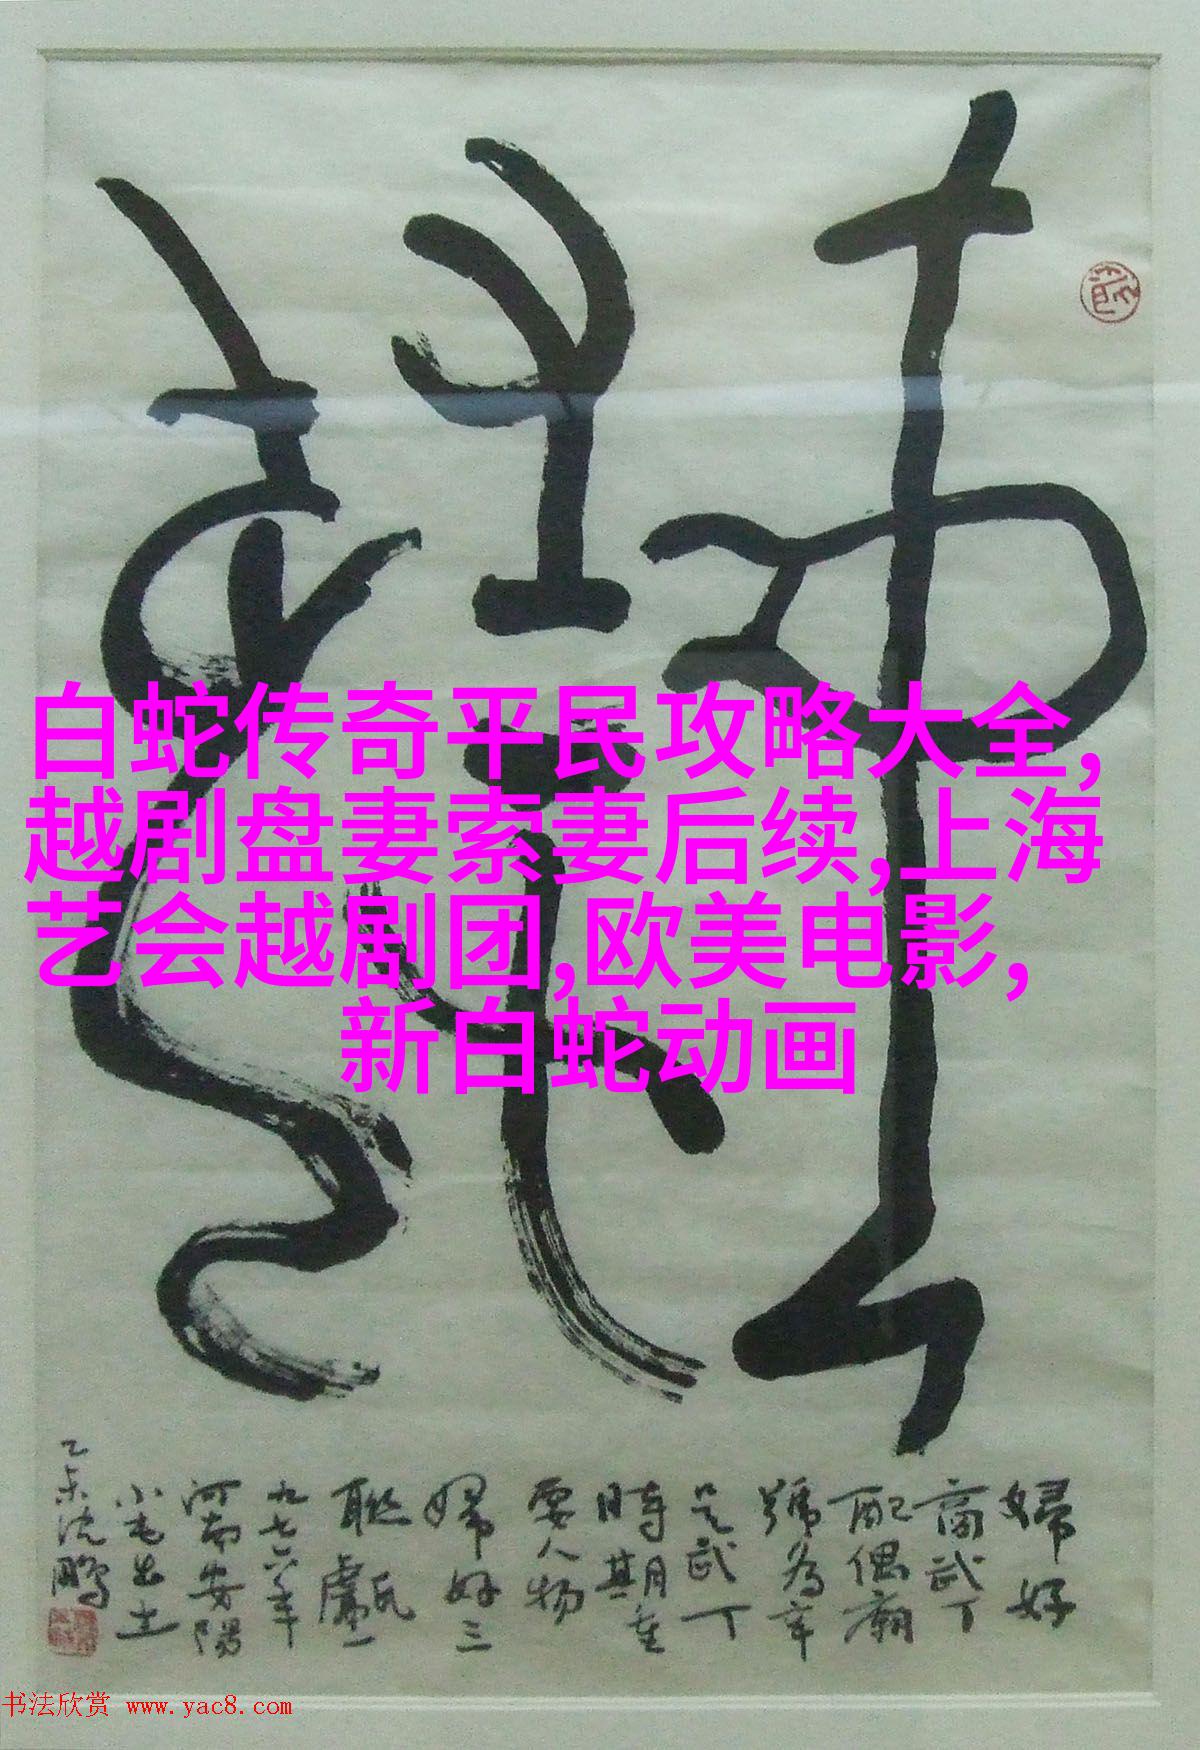 白蛇传奇平民攻略大全,
越剧盘妻索妻后续,上海
艺会越剧团,欧美电影,
新白蛇动画
婦好
商武丁
配偶廟
號为辛
是武丁
時期重
要人物
婦好三
聯甗一
九七六年
河南安陽
小屯出土
乙未沈鹏
书法欣赏 www.yac8.com